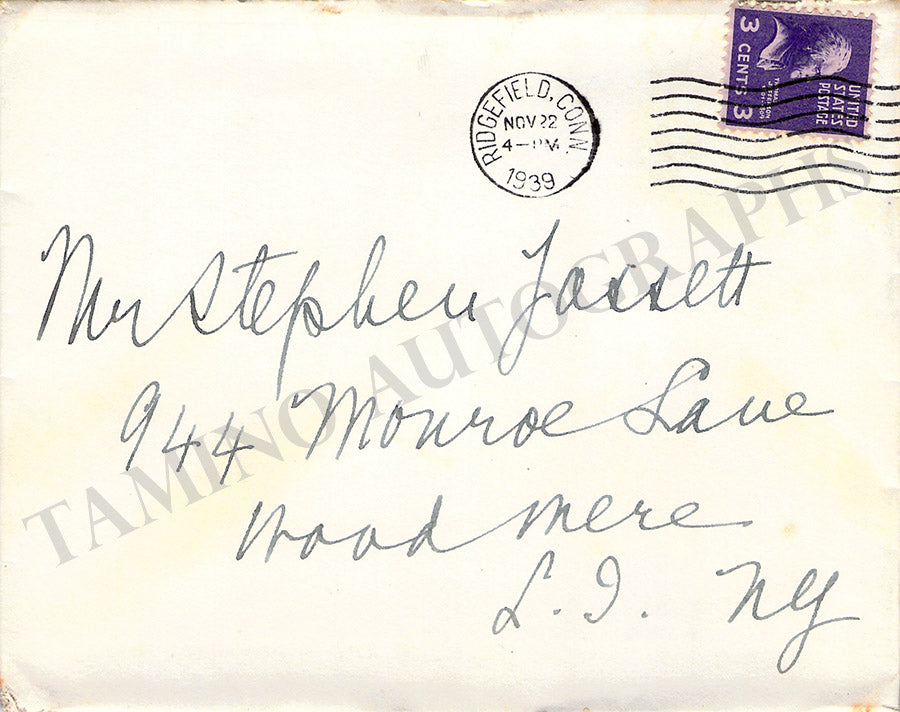 UNITED
STATES
POSTAGE
THOMAS
JEFFERSON
3 CENTS 3
RIDGEFIELD, CONN.
NOV 22
4-PM
1939
Mr Stephen Jassett
944 Monroe Lane
Woodmere
L. I. NY
TAMINO AUTOGRAPHS